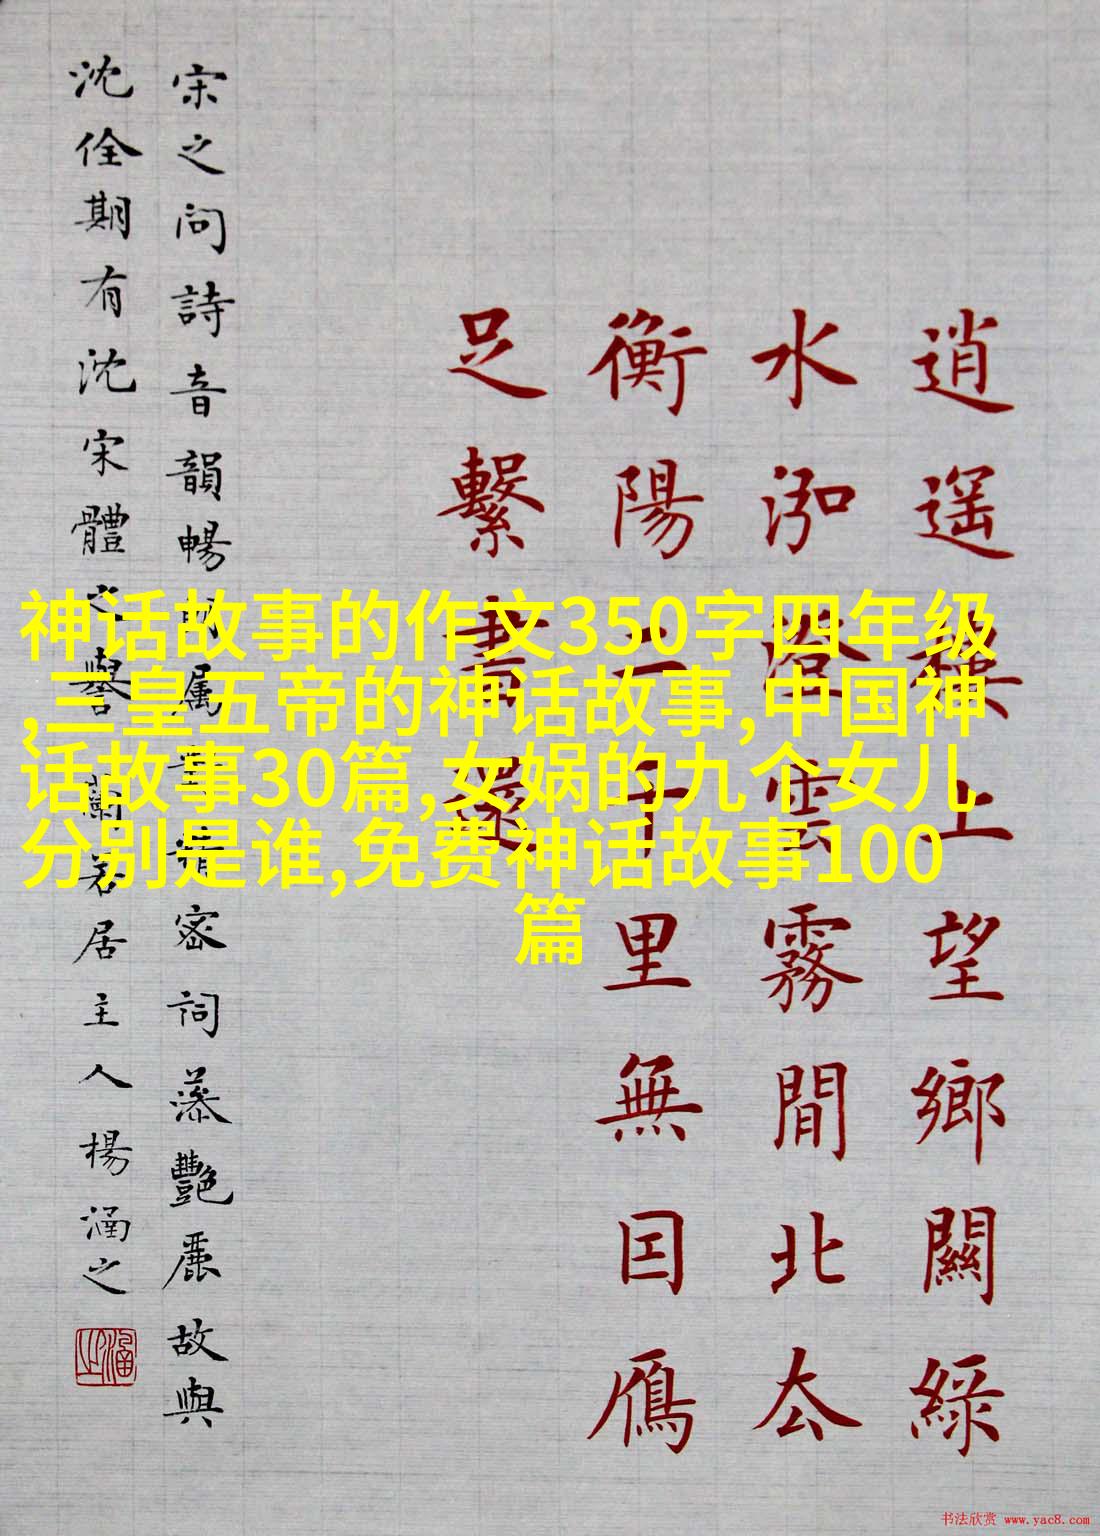 逍遥樓上望鄉關綠
水泓澄雲霧間北去
衡陽二千里無因雁
足繫書還
宋之问詩音韻暢属對精密詞藻艷麗故與
沈佺期有沈宋體之譽蘭若居主人楊涵之
神话故事的作文350字四年级
,三皇五帝的神话故事,中国神
话故事30篇,女娲的九个女儿
分别是谁,免费神话故事100
篇
书法欣赏 www.yac8.com